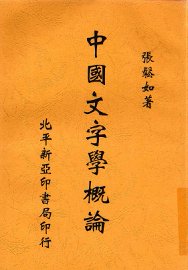 張鬆如著
中國文字學概論
北平新亞印書局印行